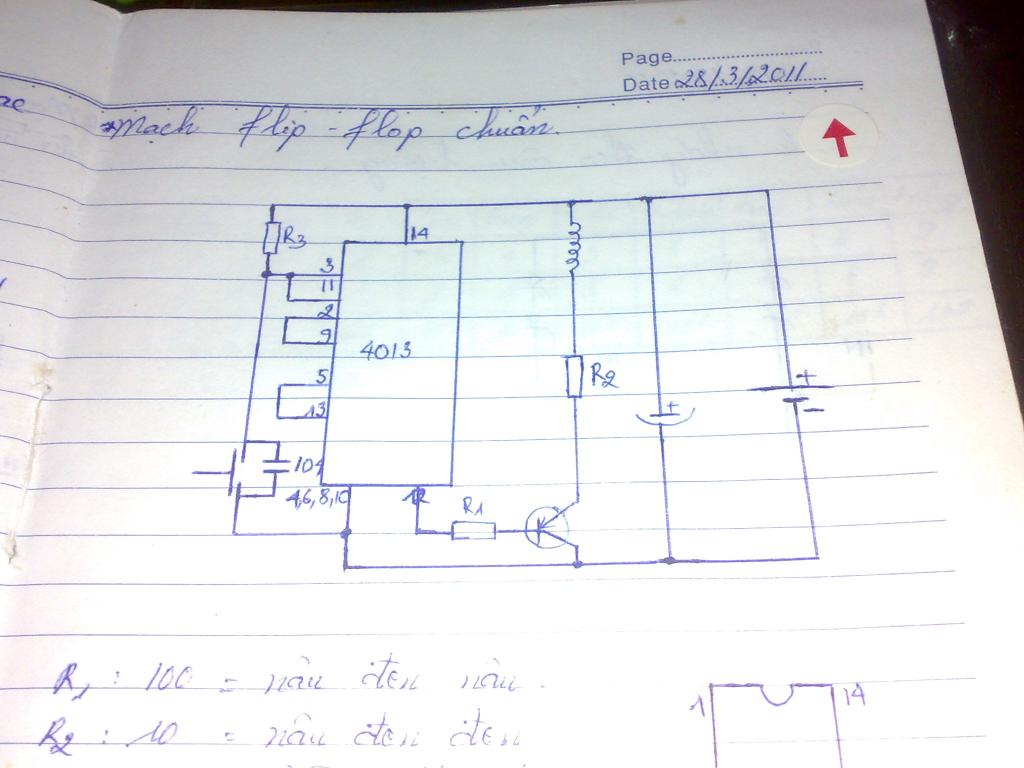 Page
Date 28/3/2011
*Mạch flip-flop chuẩn.
14
R3
3
11
2
9
4013
R2
5
13
+
+
-
104
4,6,8,10
12
R1
R1 : 100 = nâu đen nâu.
1 14
R2 : 10 = nâu đen đen